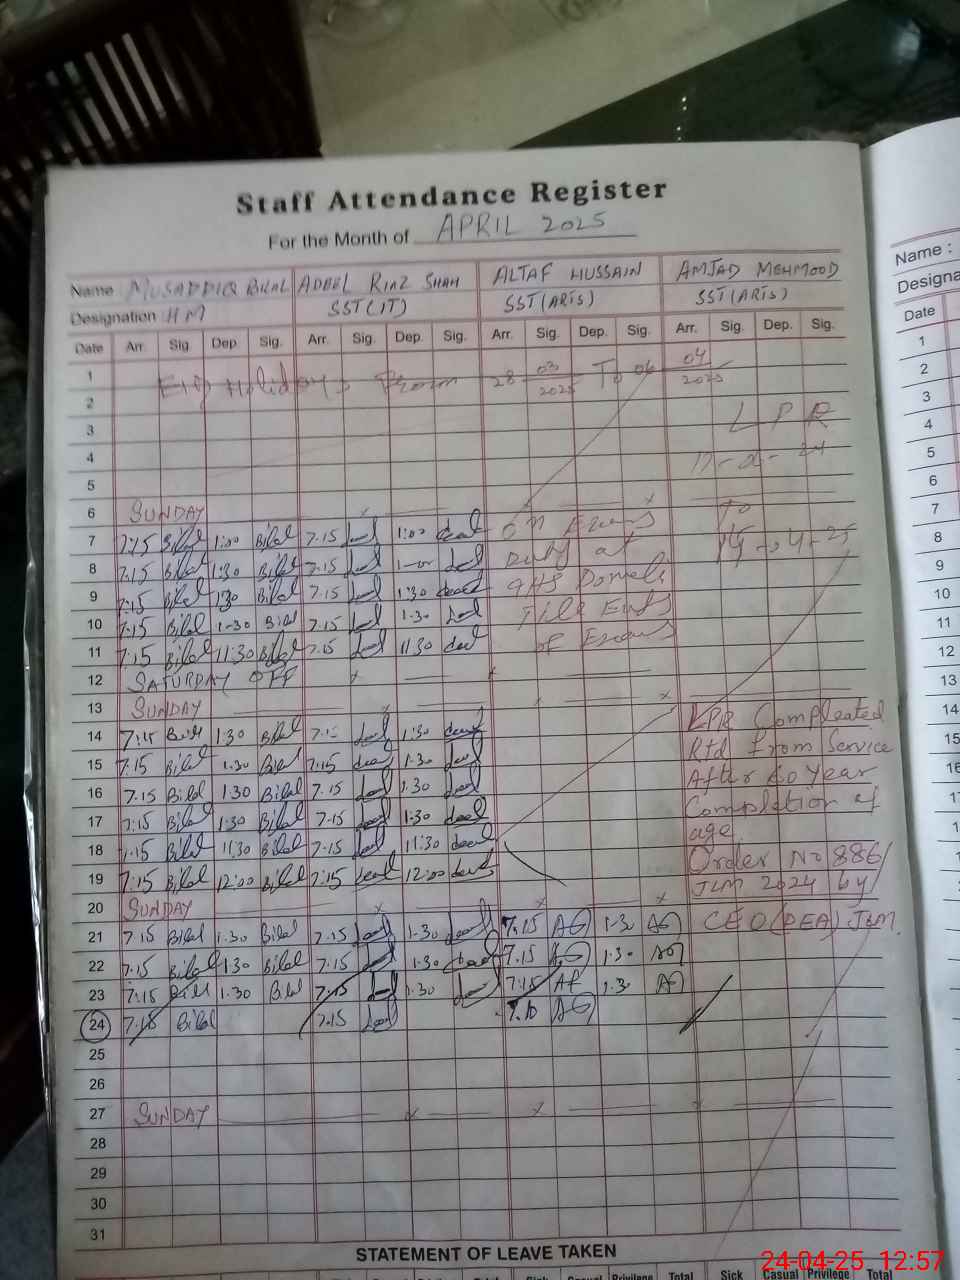 Staff Attendance Register
For the Month of APRIL 2025
Name MUSADDIQ BILAL ADEEL RIAZ SHAH ALTAF HUSSAIN AMJAD MEHMOOD
Designation HM SST(IT) SST(ARTS) SST(ARTS)
Date Arr. Sig. Dep. Sig. Arr. Sig. Dep. Sig. Arr. Sig. Dep. Sig. Arr. Sig. Dep. Sig.
1 Holidays From 28 03/2025 To 06 04/2025
2
3 LPR
4
5
6 SUNDAY To
7 7:15 Bilal 1:00 Bilal 7.15 1:00 on Exams
8 7.15 Bilal 1:30 Bilal 7.15 Duty at
9 7:15 Bilal 1:30 Bilal 7.15 1:30 GHS
10 7.15 Bilal 1-30 Bilal 7.15 1-30
11 7:15 Bilal 11:30 Bilal 7.15 11:30 of Exams
12 SATURDAY OFF
13 SUNDAY
14 7:15 1:30 Bilal 7.15 1:30 LPR Compleated
15 7.15 Bilal 1.30 Bilal 7:15 1.30 Rtd From Service
16 7.15 Bilal 1.30 Bilal 7.15 1.30 After 60 Year
17 7:15 Bilal 1:30 Bilal 7.15 1:30 Completion of
18 7.15 Bilal 11:30 Bilal 7.15 11:30 age.
19 7:15 Bilal 12:00 Bilal 7:15 12:00 Order No 886/
JLM 2024 by
20 SUNDAY
21 7.15 Bilal 1.30 Bilal 7.15 1.30 7.15 1.30 CEO (DEA) JLM.
22 7.15 Bilal 1.30 Bilal 7.15 1.30 7.15 1.30
23 7:15 Bilal 1.30 Bilal 7.15 1.30 7:15 1.30
24 7.15 Bilal 7.15 7.10
25
26
27 SUNDAY
28
29
30
31
STATEMENT OF LEAVE TAKEN
Sick Casual Privilege Total Sick Casual Privilege Total
Name :
Designa
Date
1
2
3
4
5
6
7
8
9
10
11
12
13
14
15
16
24-04-25 12:57